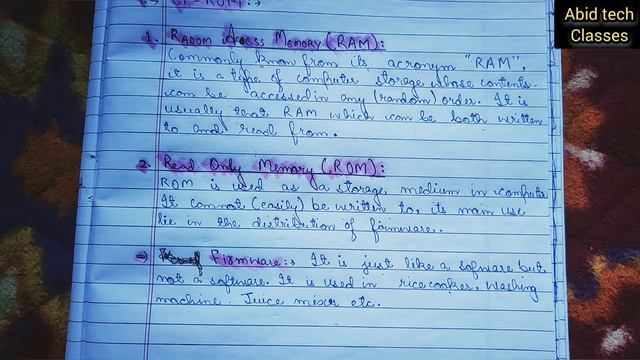 Abid tech
Classes
1. RADOM Access MEMORY (RAM):
Commonly know from its acronym "RAM",
it is a type of computer storage whose contents
can be accessed in any (random) order. It is
usually that RAM which can be both written
to and read from.
2. Read Only Memory (ROM):
ROM is used as a storage medium in computer
It cannot (easily) be written to, its main use
lie in the distribution of firmware.
⇒ Firmware:→ It is just like a sofware but
not a software. It is used in rice cooker, washing
machine. Juice mixer etc.